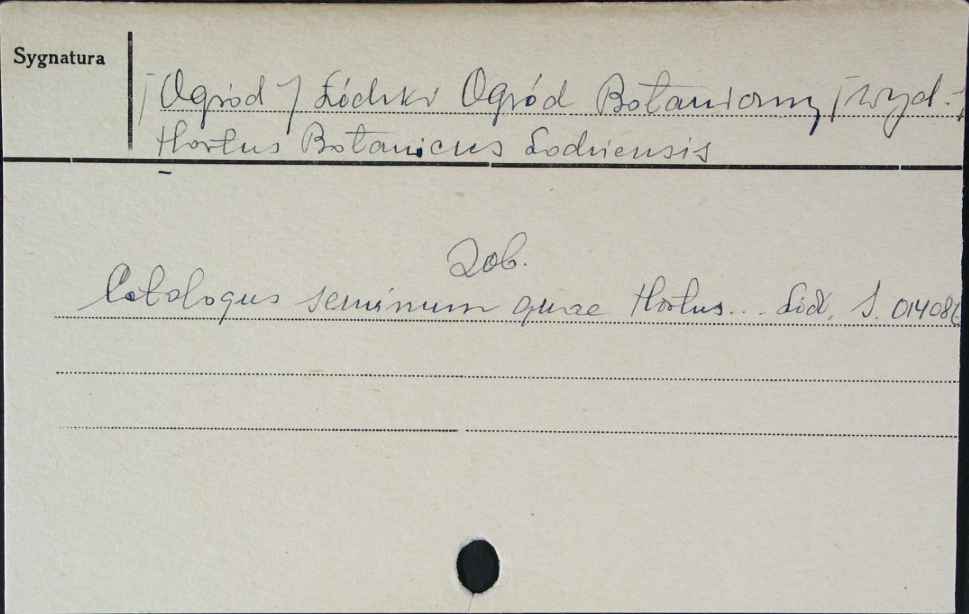 Sygnatura
[Ogród] Łódzki Ogród Botaniczny [wyd.]
Hortus Botanicus Lodziensis
Zob.
Catalogus seminum quae Hortus... Łódź, S. 014086